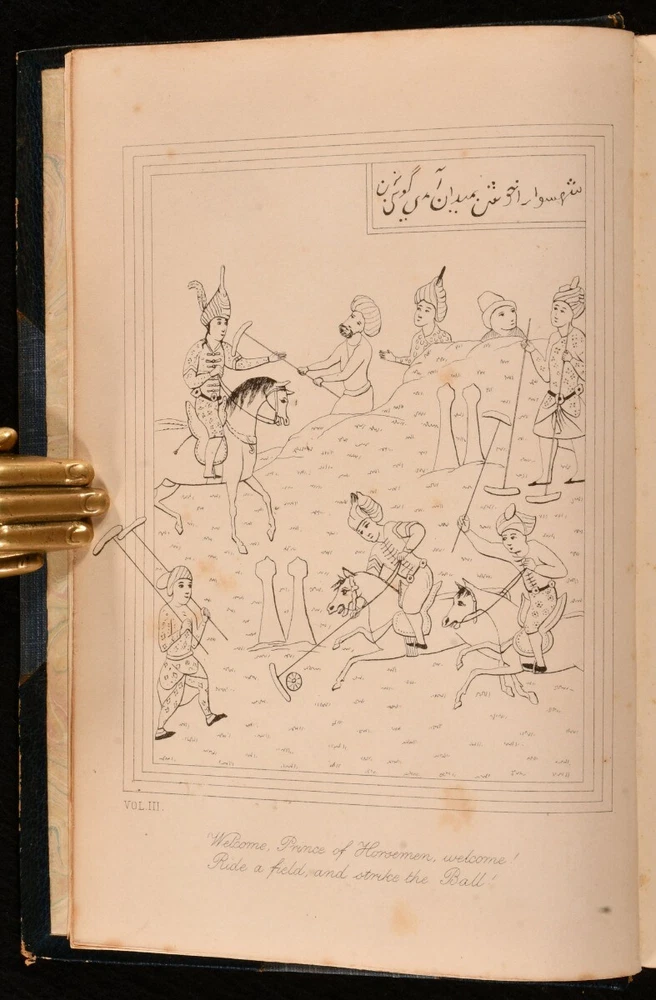 شهسوارا خوش بمیدان آمدی گویی بزن
VOL. III.
Welcome, Prince of Horsemen, welcome!
Ride a field, and strike the Ball!